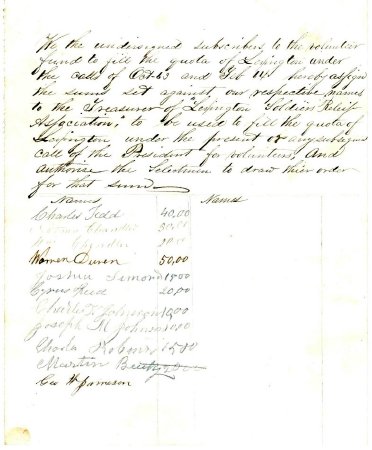 We the undersigned subscribers to the volunteer
fund to fill the quota of Lexington under
the calls of Oct 63 and Feb 14 hereby assign
the sums set against our respective names
to the Treasurer of "Lexington Soldiers Relief
Association," to be used to fill the quota of
Lexington under the present or any subsequent
call of the President for volunteers, and
authorise the Selectmen to draw their order
for that sum
Names Names
Charles Tidd 40,00
Chandler 30,00
20,00
Warren Duren 50,00
Joshua Simond 15 00
Cyrus Reed 20,00
Charles Johnson 10,00
Joseph Johnson 10 00
Charles Robinson 15 00
Martin
Geo W Jameson